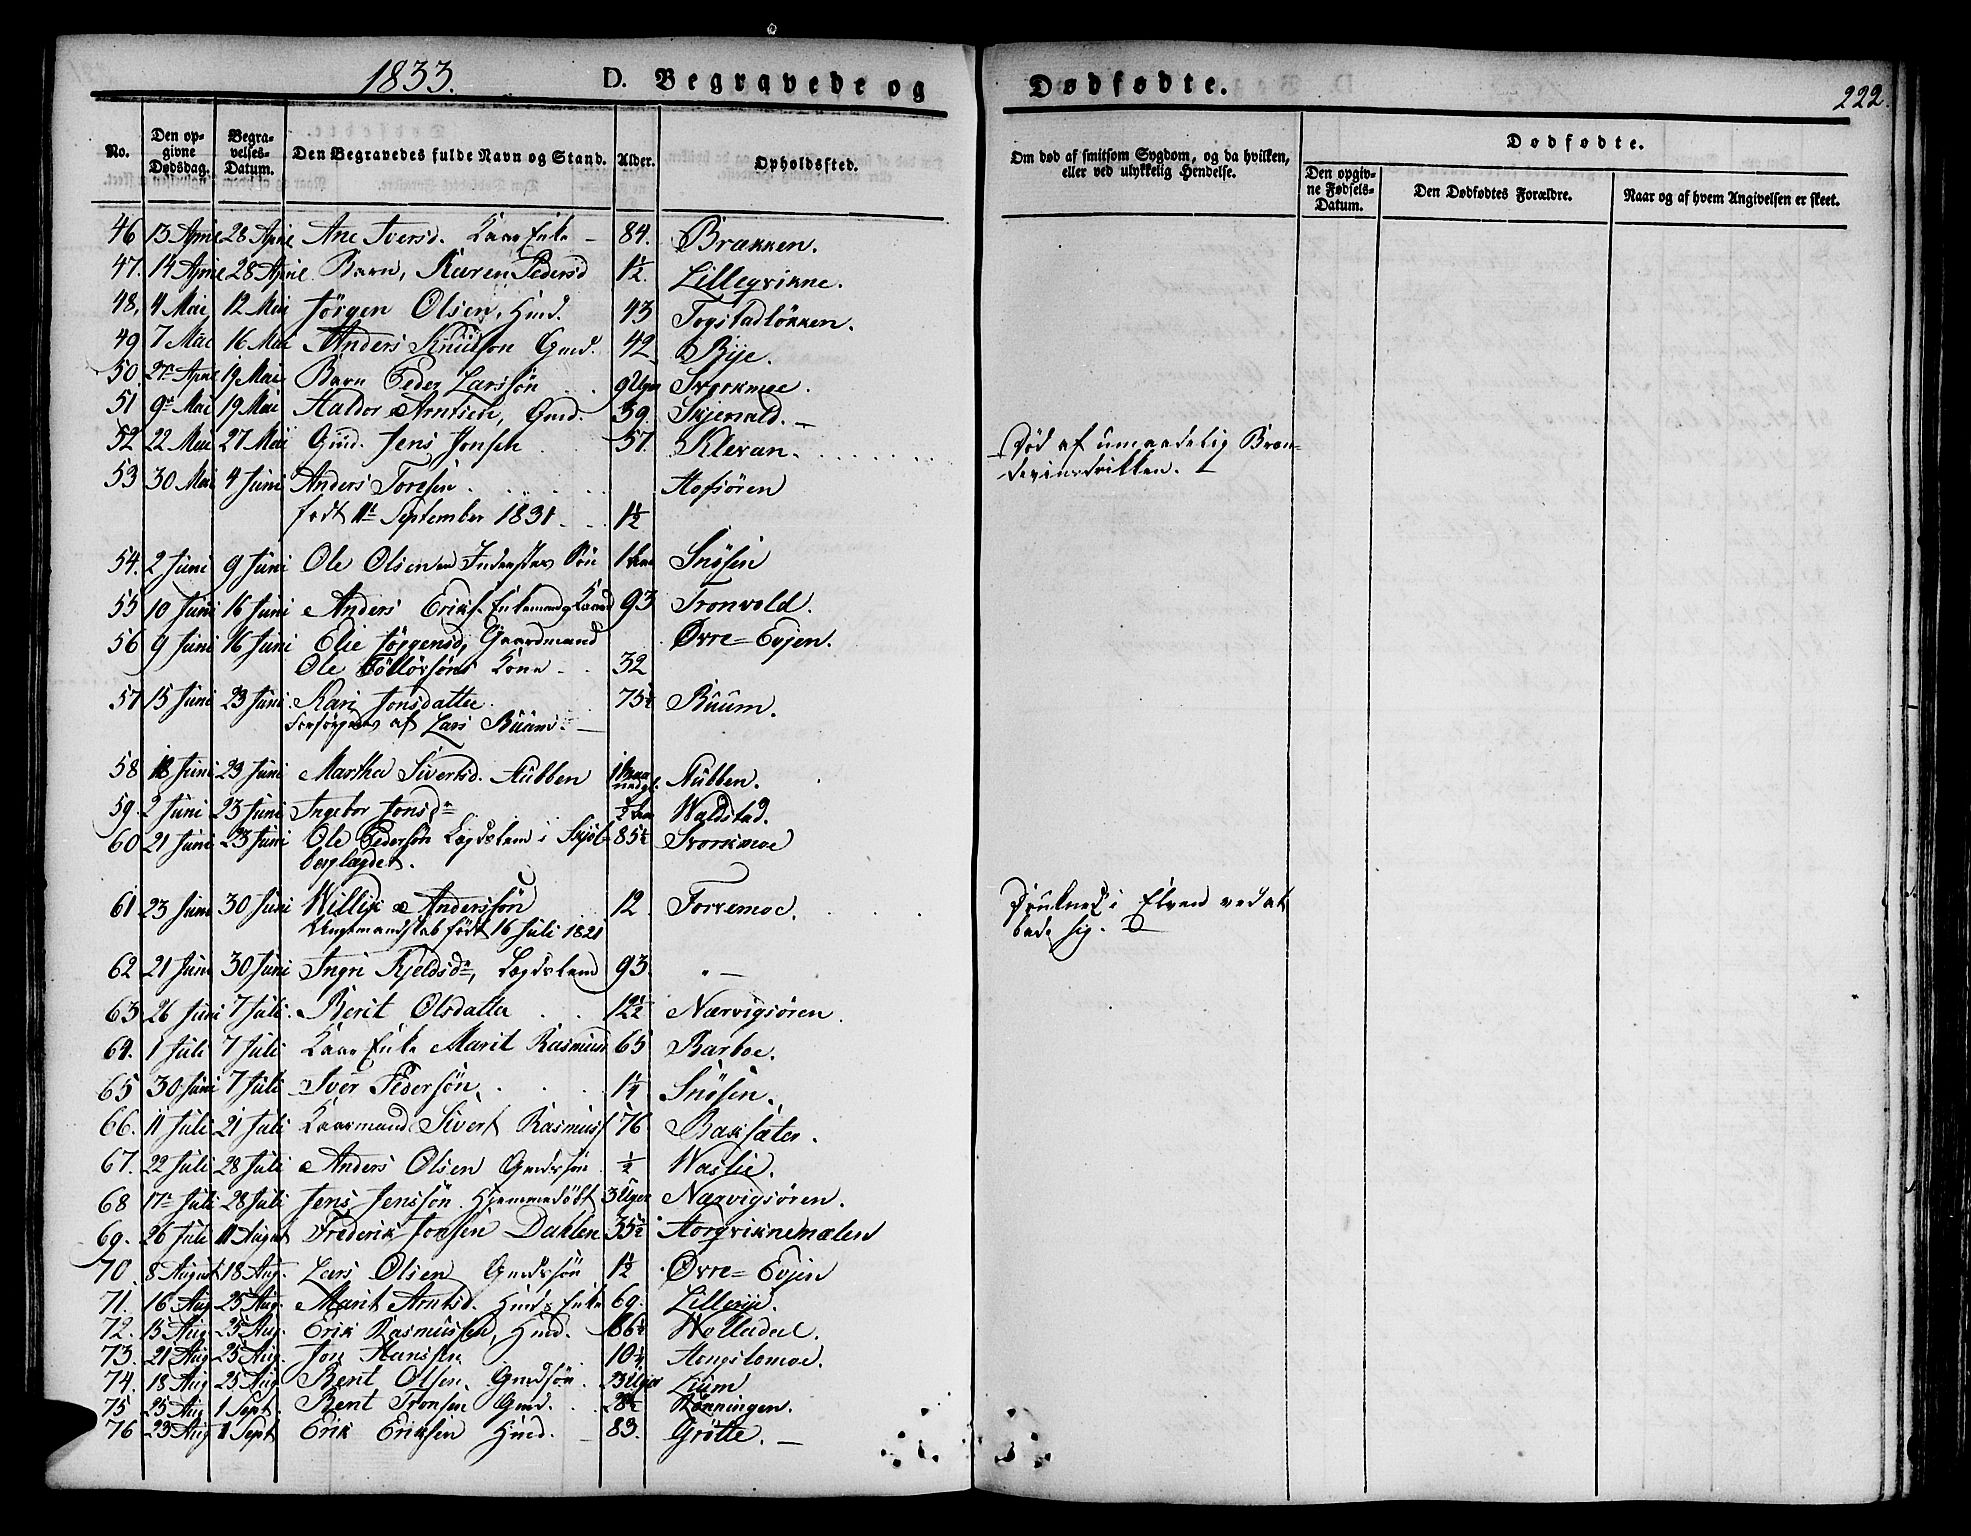 1833.
D. Begravede og
Dødfødte.
222.
No.
Den opgivne Dødsdag.
Begravelses-Datum.
Den Begravedes fulde Navn og Stand.
Alder.
Opholdssted.
Om død af smitsom Sygdom, og da hvilken, eller ved ulykkelig Hendelse.
Dødfødte.
Den opgivne Fødsels-Datum.
Den Dødfødtes Forældre.
Naar og af hvem Angivelsen er skeet.
46 13 April 28 April Ane Iversd. Kaar Enke – 84. Brækken.
47. 14 April 28 April Barn, Karen Pedersd 1½. Lillegvikne.
48. 4 Mai 12 Mai Jörgen Olsen, Hmd. 43 Togstadløkken.
49 7 Mai 16 Mai Anders Knudson Gmd. 42 Bye.
50. 27 April 19 Mai Barn Peder Larssön 9 Uger Svorkmoe.
51 9 Mai 19 Mai Haldor Arntsen, Gmd. 59. Skjenald. –
52 22 Mai 27 Mai Gmd. Jens Jonsen 57. Klevan. Död af umaadelig Bræn-
devinsdrikken.
53 30 Mai 4 Juni Anders Toresen Hofsören
født 11 September 1831 1½
54. 2 Juni 9 Juni Ole Olsen en Inderstes Sön 1 Snösen
55 10 Juni 16 Juni Anders Eriks. Enkemand Kaard 93 Tronvold.
56 9 Juni 16 Juni Elie Jörgensd, Gaardmand Øvre=Evjen.
Ole Kone 32
57 15 Juni 23 Juni Kari Jonsdatter 75½ Buum.
Forsörges af Lars Buum. –
58 18 Juni 23 Juni Martha Sivertsd. Stubben 1 Maa- Stubben.
nedgl.
59. 2 Juni 23 Juni Ingebor Jonsdr ½ Waldstad.
60 21 Juni 23 Juni Ole Pedersön Lægdslem i Skjöl- 85½ Svorkmoe
berglægdet.
61 23 Juni 30 Juni Willik Anderssön 12 Forvemoe. Druknet i Elven ved at
Ungemandskab födt 16 Juli 1821 bade sig.
62 21 Juni 30 Juni Ingri Kjeldsdr, Lægdslem 93. " –
63 26 Juni 7 Juli. Berit Olsdatter 12½ Nærvigsören.
64. 1 Juli 7 Juli Kaar Enke Marit Rasmusd 65 Barboe.
65 30 Juni 7 Juli Iver Pedersön. 1¼ Snösen.
66. 11 Juli 21 Juli Kaarmand Sivert Rasmuss 76 Baksæter.
67. 22 Juli 28 Juli Anders Olsen Gmdssön ½ Waslie.
68 17 Juli 28 Juli Jens Jenssön. Hjemmedöbt 3 Uger Nærvigsören.
69. 26 Juli 11 August Frederik Jonsen Dahlen 35½ Horgviknemælen
70 8 August 18 Aug. Lars Olsen Gmdssön 1½ Øvre=Evjen
71. 16 Aug 25 Aug. Marit Arntsd. Hmds Enke 69. Lillerye.
72. 15 Aug 25 Aug. Erik Rasmussen, Hmd. 66½ Wolladal.
73. 21 Aug 25 Aug. Jon Hanssen 10½ Hongslomoe.
74. 18 Aug 25 Aug Berit Olsen Gmdsön. 23 Uger Lium
75 25 Aug 1 Sept. Bent Tronsen Gmd. 28½ Rönningen.
76 23 Aug 1 Sept Erik Eriksen Hmd. 83. Grötte. –